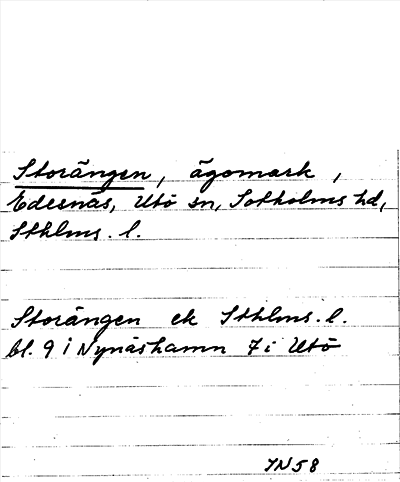 Storängen, ägomark,
Edesnäs, Utö sn, Sotholms hd,
Sthlms. l.
Storängen ek Sthlms. l.
bl. 9 i Nynäshamn 7 i Utö
IN58